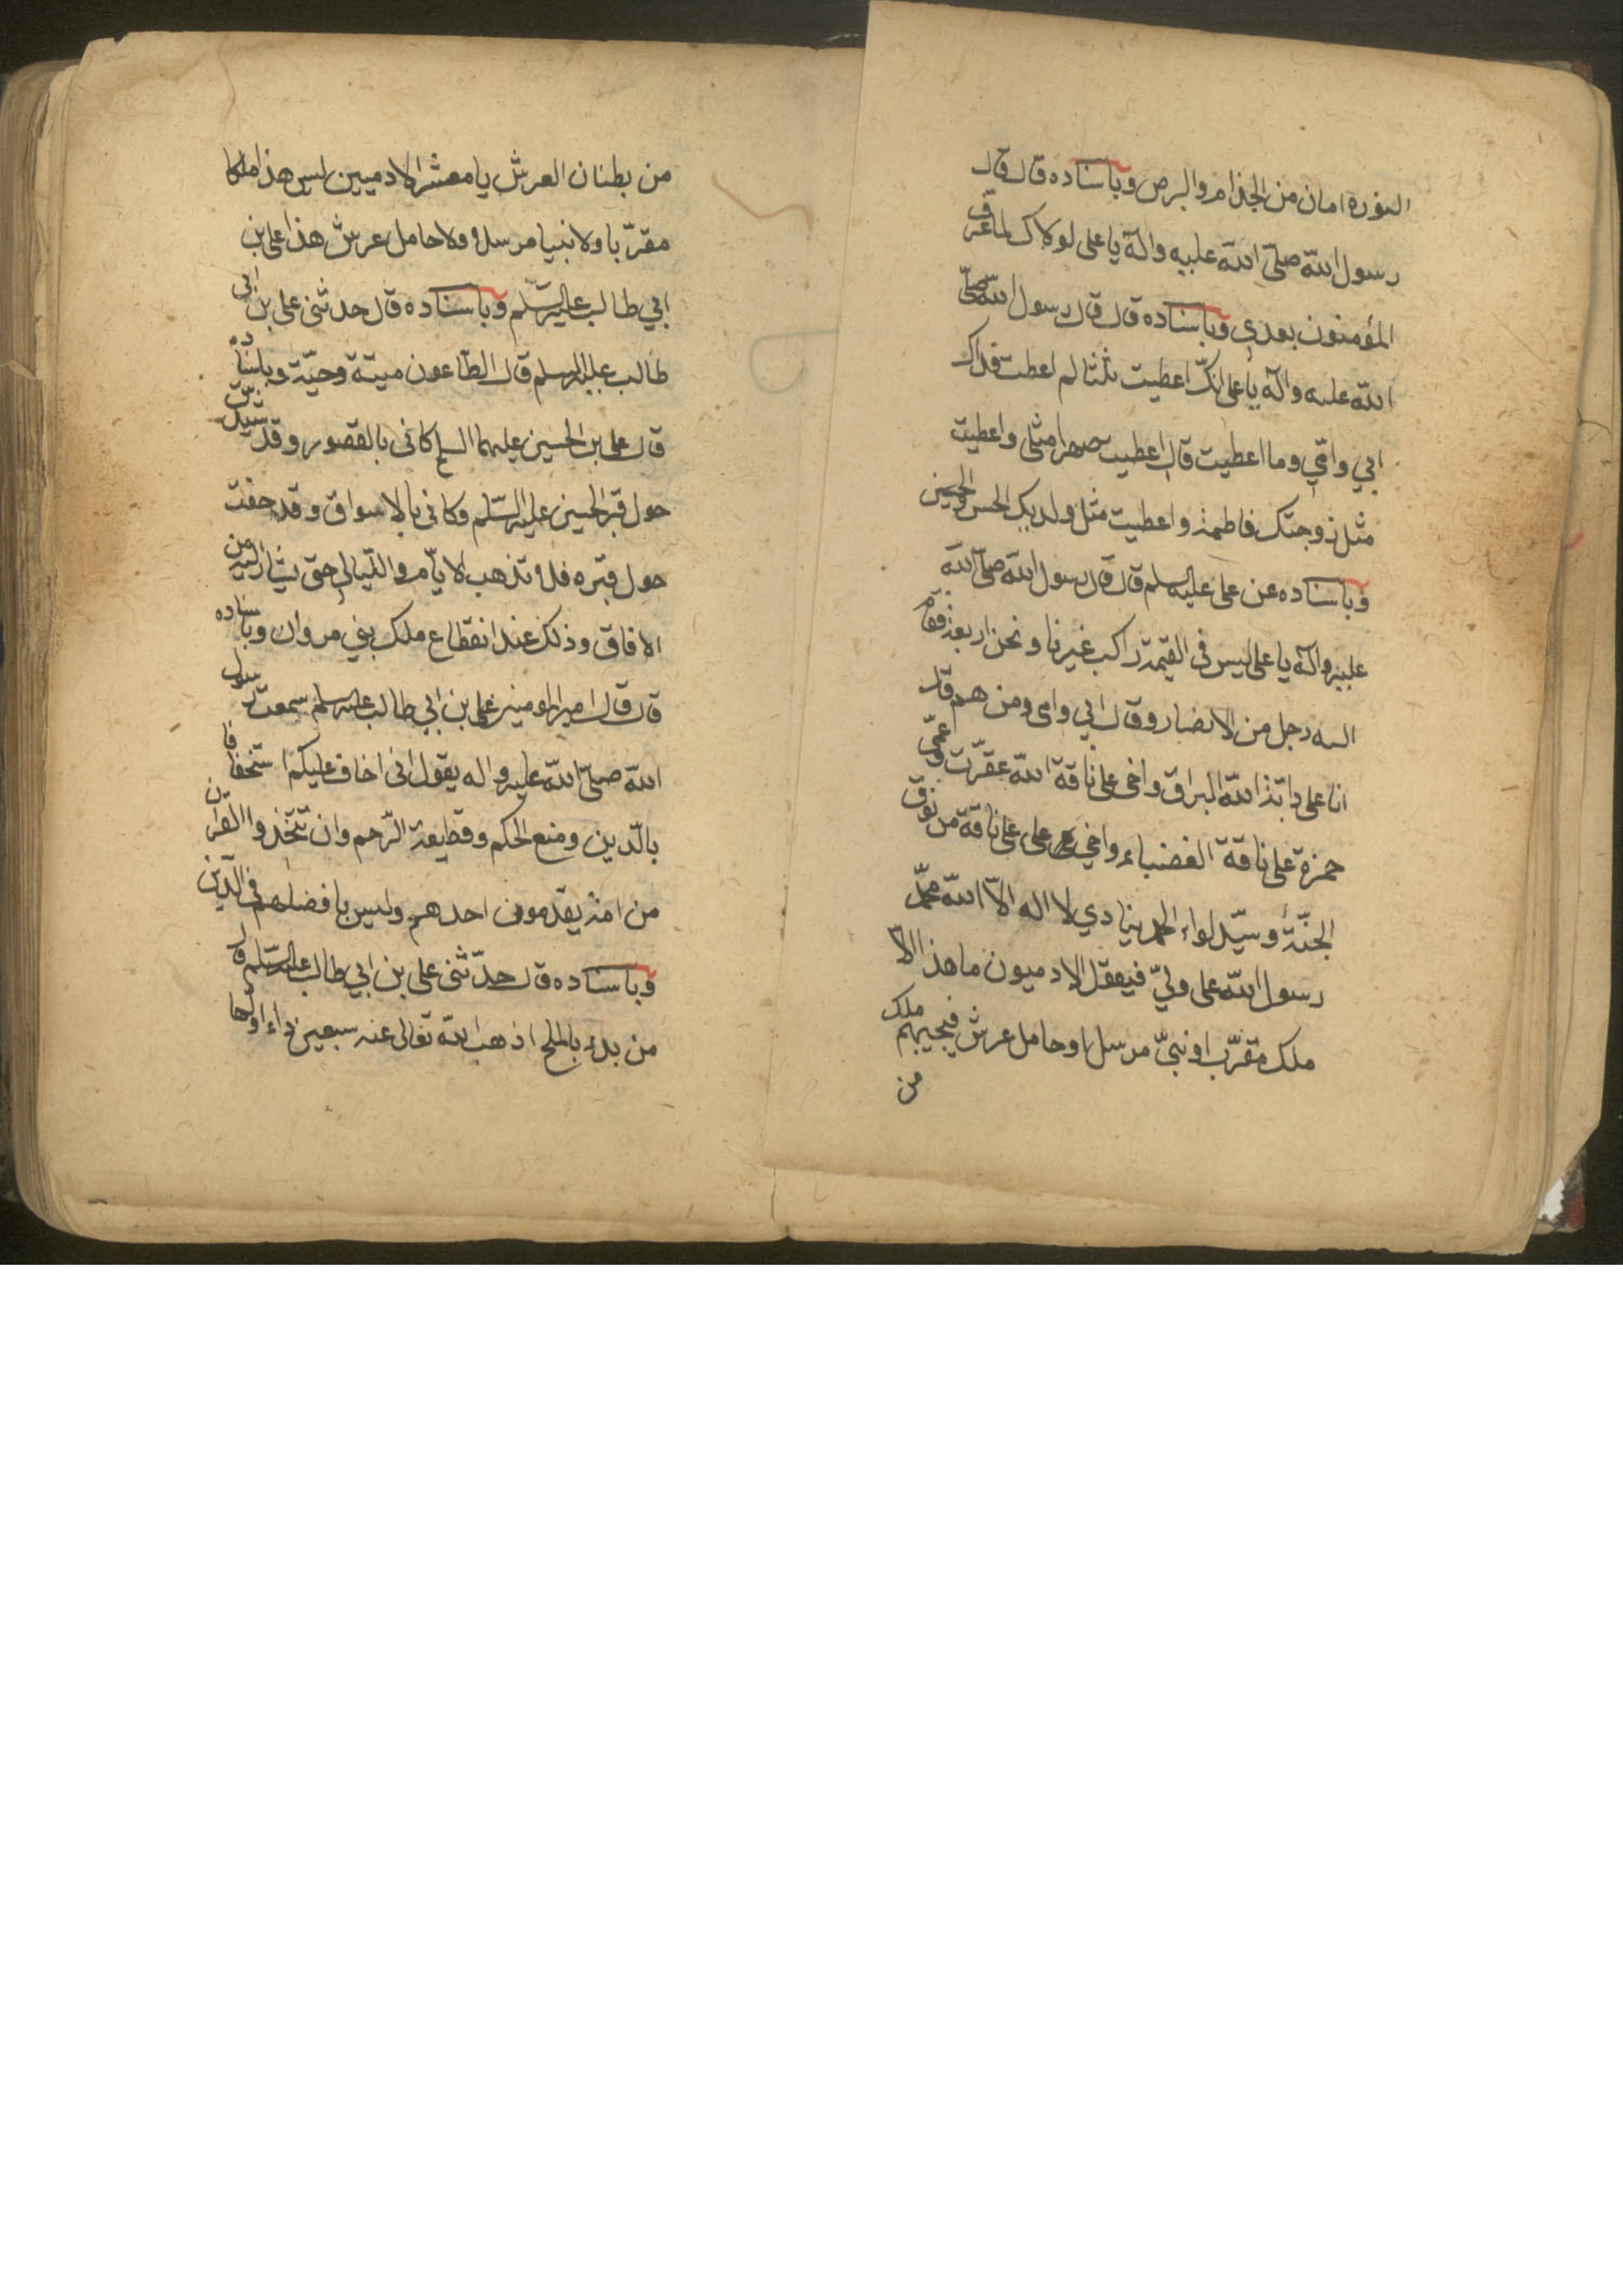 النورة امان من الجذام والبرص وباسناده قال قال
رسول الله صلى الله عليه وآله يا على لولاك لما عرف
المؤمنون بعدي وباسناده قال قال رسول الله صلى
الله عليه وآله يا على انك اعطيت ثلثا لم اعطت فداك
ابي وامّي وما اعطيت قال اعطيت صهرا مثلى واعطيت
مثل زوجتك فاطمة واعطيت مثل ولديك الحسن والحسين
وباسناده عن على عليه السلم قال قال رسول الله صلى الله
عليه وآله يا على ليس في القيمة راكب غيرنا ونحن اربعة فقام
اليه رجل من الانصار وقال ابي وامى ومن هم قال
انا على دابة الله البراق واخى على ناقة الله عقرت وعمّي
حمزة على ناقة الغضباء واخي على على ناقة من نوق
الجنّة وسيّد لواء الحمد ينادي لا اله الّا الله محمّد
رسول الله على وليّ فيعقل الادميون ما هذا الّا
ملك مقرّب او نبيّ مرسل او حامل عرش فيجيبهم ملك
من
من بطنان العرش يا معشر الادميين ليس هذا ملكا
مقرّبا ولا نبيا مرسلا ولا حامل عرش هذا على بن
ابي طالب عليه السّلم وباسناده قال حدثنى على بن ابي
طالب عليه السلم قال الطاعون ميتة وحيّة وباسناده
قال على بن الحسين عليهما السلم كانى بالقصور وقد شيدت
حول قبر الحسين عليه السّلم وكانى بالاسواق وقد حفت
حول قبره فلا تذهب الايّام والليالى حتى يثار اليه من
الافاق وذلك عند انقطاع ملك بني مروان وباسناده
قال قال امير المومنين على بن ابي طالب عليه سلم سمعت رسول
الله صلّى الله عليه واله يقول انى اخاف عليكم استخفافا
بالدّين ومنع الحكم وقطيعة الرّحم وان تتّخذوا القران
من امة يقدّمون احدهم وليس بافضلهم في الدّين
وباسناده قال حدّثنى على بن ابي طالب عليه السّلم قال
من بدء بالملح اذهب الله تعالى عنه سبعين داء اولها